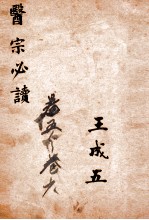 醫宗必讀
卷五个卷六
王成五